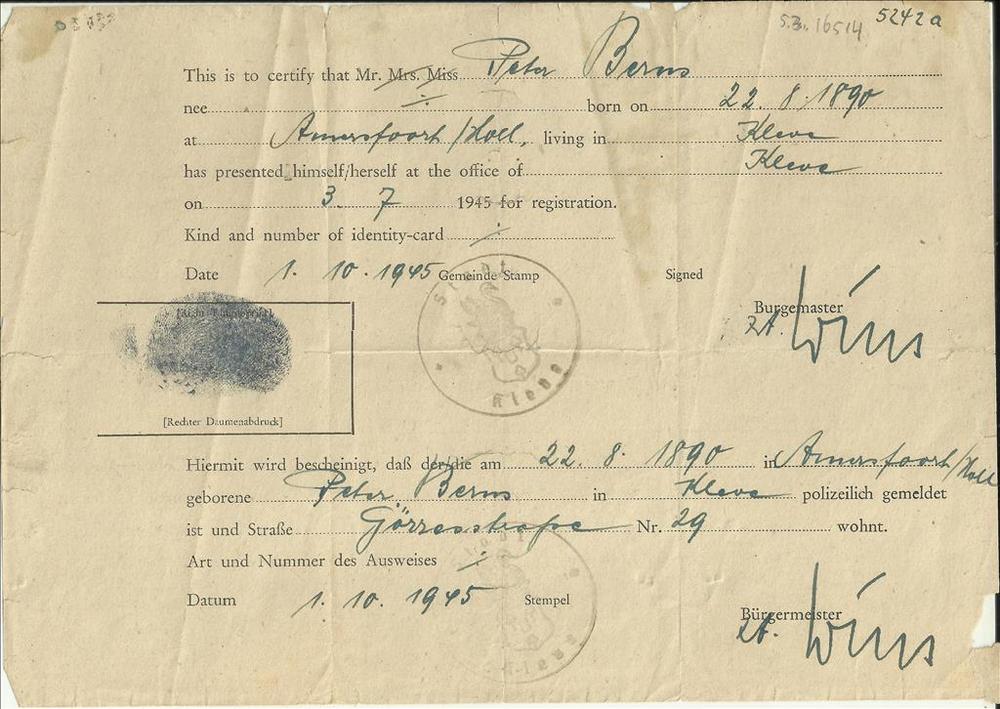 5.3. 16514 5242a
This is to certify that Mr. Mrs. Miss Peter Berns
nee ÷ born on 22. 8. 1890
at Amersfoort/Holl. living in Kleve
has presented himself/herself at the office of Kleve
on 3. 7 1945 for registration.
Kind and number of identity-card ÷
Date 1. 10. 1945 Gemeinde Stamp Signed
Stadt Kleve
Burgemaster
[Rechter Daumenabdruck]
Hiermit wird bescheinigt, daß der/die am 22. 8. 1890 in Amersfoort/Holl
geborene Peter Berns in Kleve polizeilich gemeldet
ist und Straße Görresstraße Nr. 29 wohnt.
Art und Nummer des Ausweises ÷
Datum 1. 10. 1945 Stempel
Bürgermeister